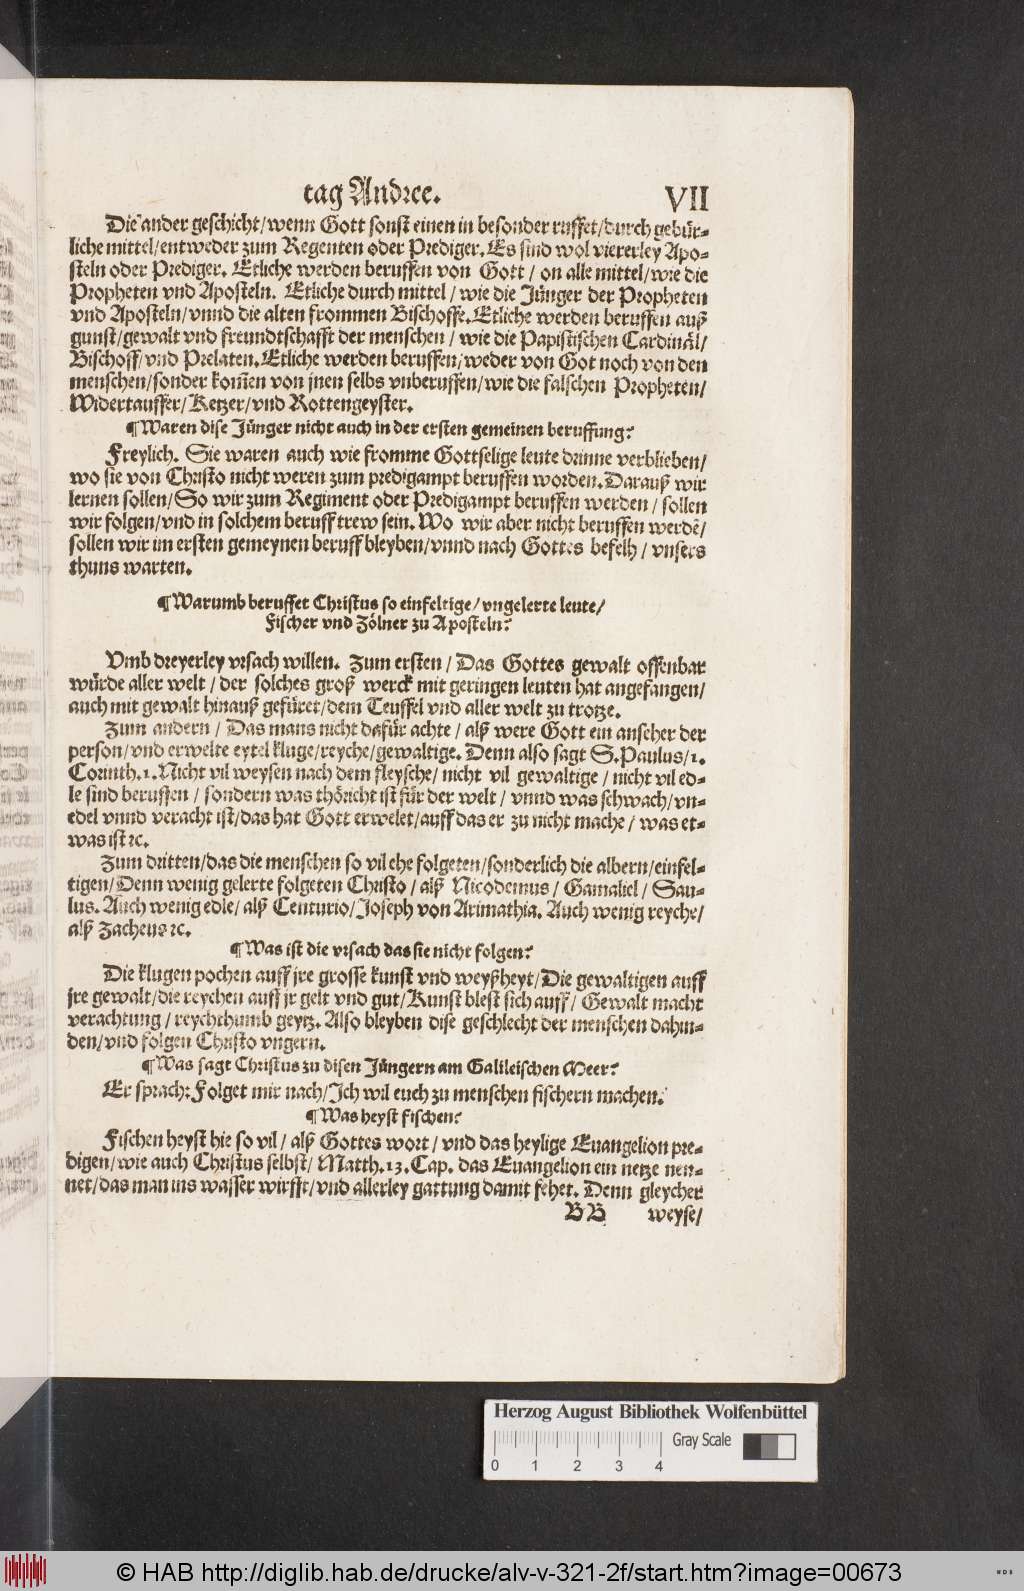 tag Andree. VII
Die ander geschicht/wenn Gott sonst einen in besonder ruffet/durch gebür-
liche mittel/entweder zum Regenten oder Prediger. Es sind wol viererley Apo-
steln oder Prediger. Etliche werden beruffen von Gott / on alle mittel/wie die
Propheten vnd Aposteln. Etliche durch mittel / wie die Jünger der Propheten
vnd Aposteln/vnnd die alten frommen Bischoffe. Etliche werden beruffen auß
gunst/gewalt vnd freundtschafft der menschen / wie die Papistischen Cardinäl/
Bischoff/vnd Prelaten. Etliche werden beruffen/weder von Got noch von den
menschen/sonder kom̃en von jnen selbs vnberuffen/wie die falschen Propheten/
Widertauffer/Ketzer/vnd Rottengeyster.
¶Waren dise Jünger nicht auch in der ersten gemeinen beruffung?
Freylich. Sie waren auch wie fromme Gottselige leute drinne verblieben/
wo sie von Christo nicht weren zum predigampt beruffen worden. Darauß wir
lernen sollen/So wir zum Regiment oder Predigampt beruffen werden / sollen
wir folgen/vnd in solchem beruff trew sein. Wo wir aber nicht beruffen werdē/
sollen wir im ersten gemeynen beruff bleyben/vnnd nach Gottes befelh / vnsers
thuns warten.
¶Warumb beruffet Christus so einfeltige/ vngelerte leute/
Fischer vnd Zölner zu Aposteln?
Vmb dreyerley vrsach willen. Zum ersten / Das Gottes gewalt offenbar
würde aller welt / der solches groß werck mit geringen leuten hat angefangen/
auch mit gewalt hinauß gefüret/dem Teuffel vnd aller welt zu trotze.
Zum andern / Das mans nicht dafür achte / alß were Gott ein anseher der
person/vnd erwelte eytel kluge/reyche/gewaltige. Denn also sagt S. Paulus/1.
Corinth.1. Nicht vil weysen nach dem fleysche/ nicht vil gewaltige / nicht vil ed-
le sind beruffen / sondern was thöricht ist für der welt / vnnd was schwach/vn-
edel vnnd veracht ist/das hat Gott erwelet/auff das er zu nicht mache / was et-
was ist ꝛc.
Zum dritten/das die menschen so vil ehe folgeten/sonderlich die albern/einfel-
tigen/Denn wenig gelerte folgeten Christo / alß Nicodemus / Gamaliel / Sau-
lus. Auch wenig edle/ alß Centurio/Joseph von Arimathia. Auch wenig reyche/
alß Zacheus ꝛc.
¶Was ist die vrsach das sie nicht folgen?
Die klugen pochen auff jre grosse kunst vnd weyßheyt/Die gewaltigen auff
jre gewalt/die reychen auff jr gelt vnd gut/Kunst blest sich auff/ Gewalt macht
verachtung / reychthumb geytz. Also bleyben dise geschlecht der menschen dahin-
den/vnd folgen Christo vngern.
¶Was sagt Christus zu disen Jüngern am Galileischen Meer?
Er sprach: Folget mir nach/Ich wil euch zu menschen fischern machen.
¶Was heyst fischen?
Fischen heyst hie so vil / alß Gottes wort / vnd das heylige Euangelion pre-
digen/wie auch Christus selbst/ Matth.13. Cap. das Euangelion ein netze nen-
net/das man ins wasser wirfft/vnd allerley gattung damit fehet. Denn gleycher
BB weyse/
Herzog August Bibliothek Wolfenbüttel
Gray Scale
0 1 2 3 4
© HAB http://diglib.hab.de/drucke/alv-v-321-2f/start.htm?image=00673